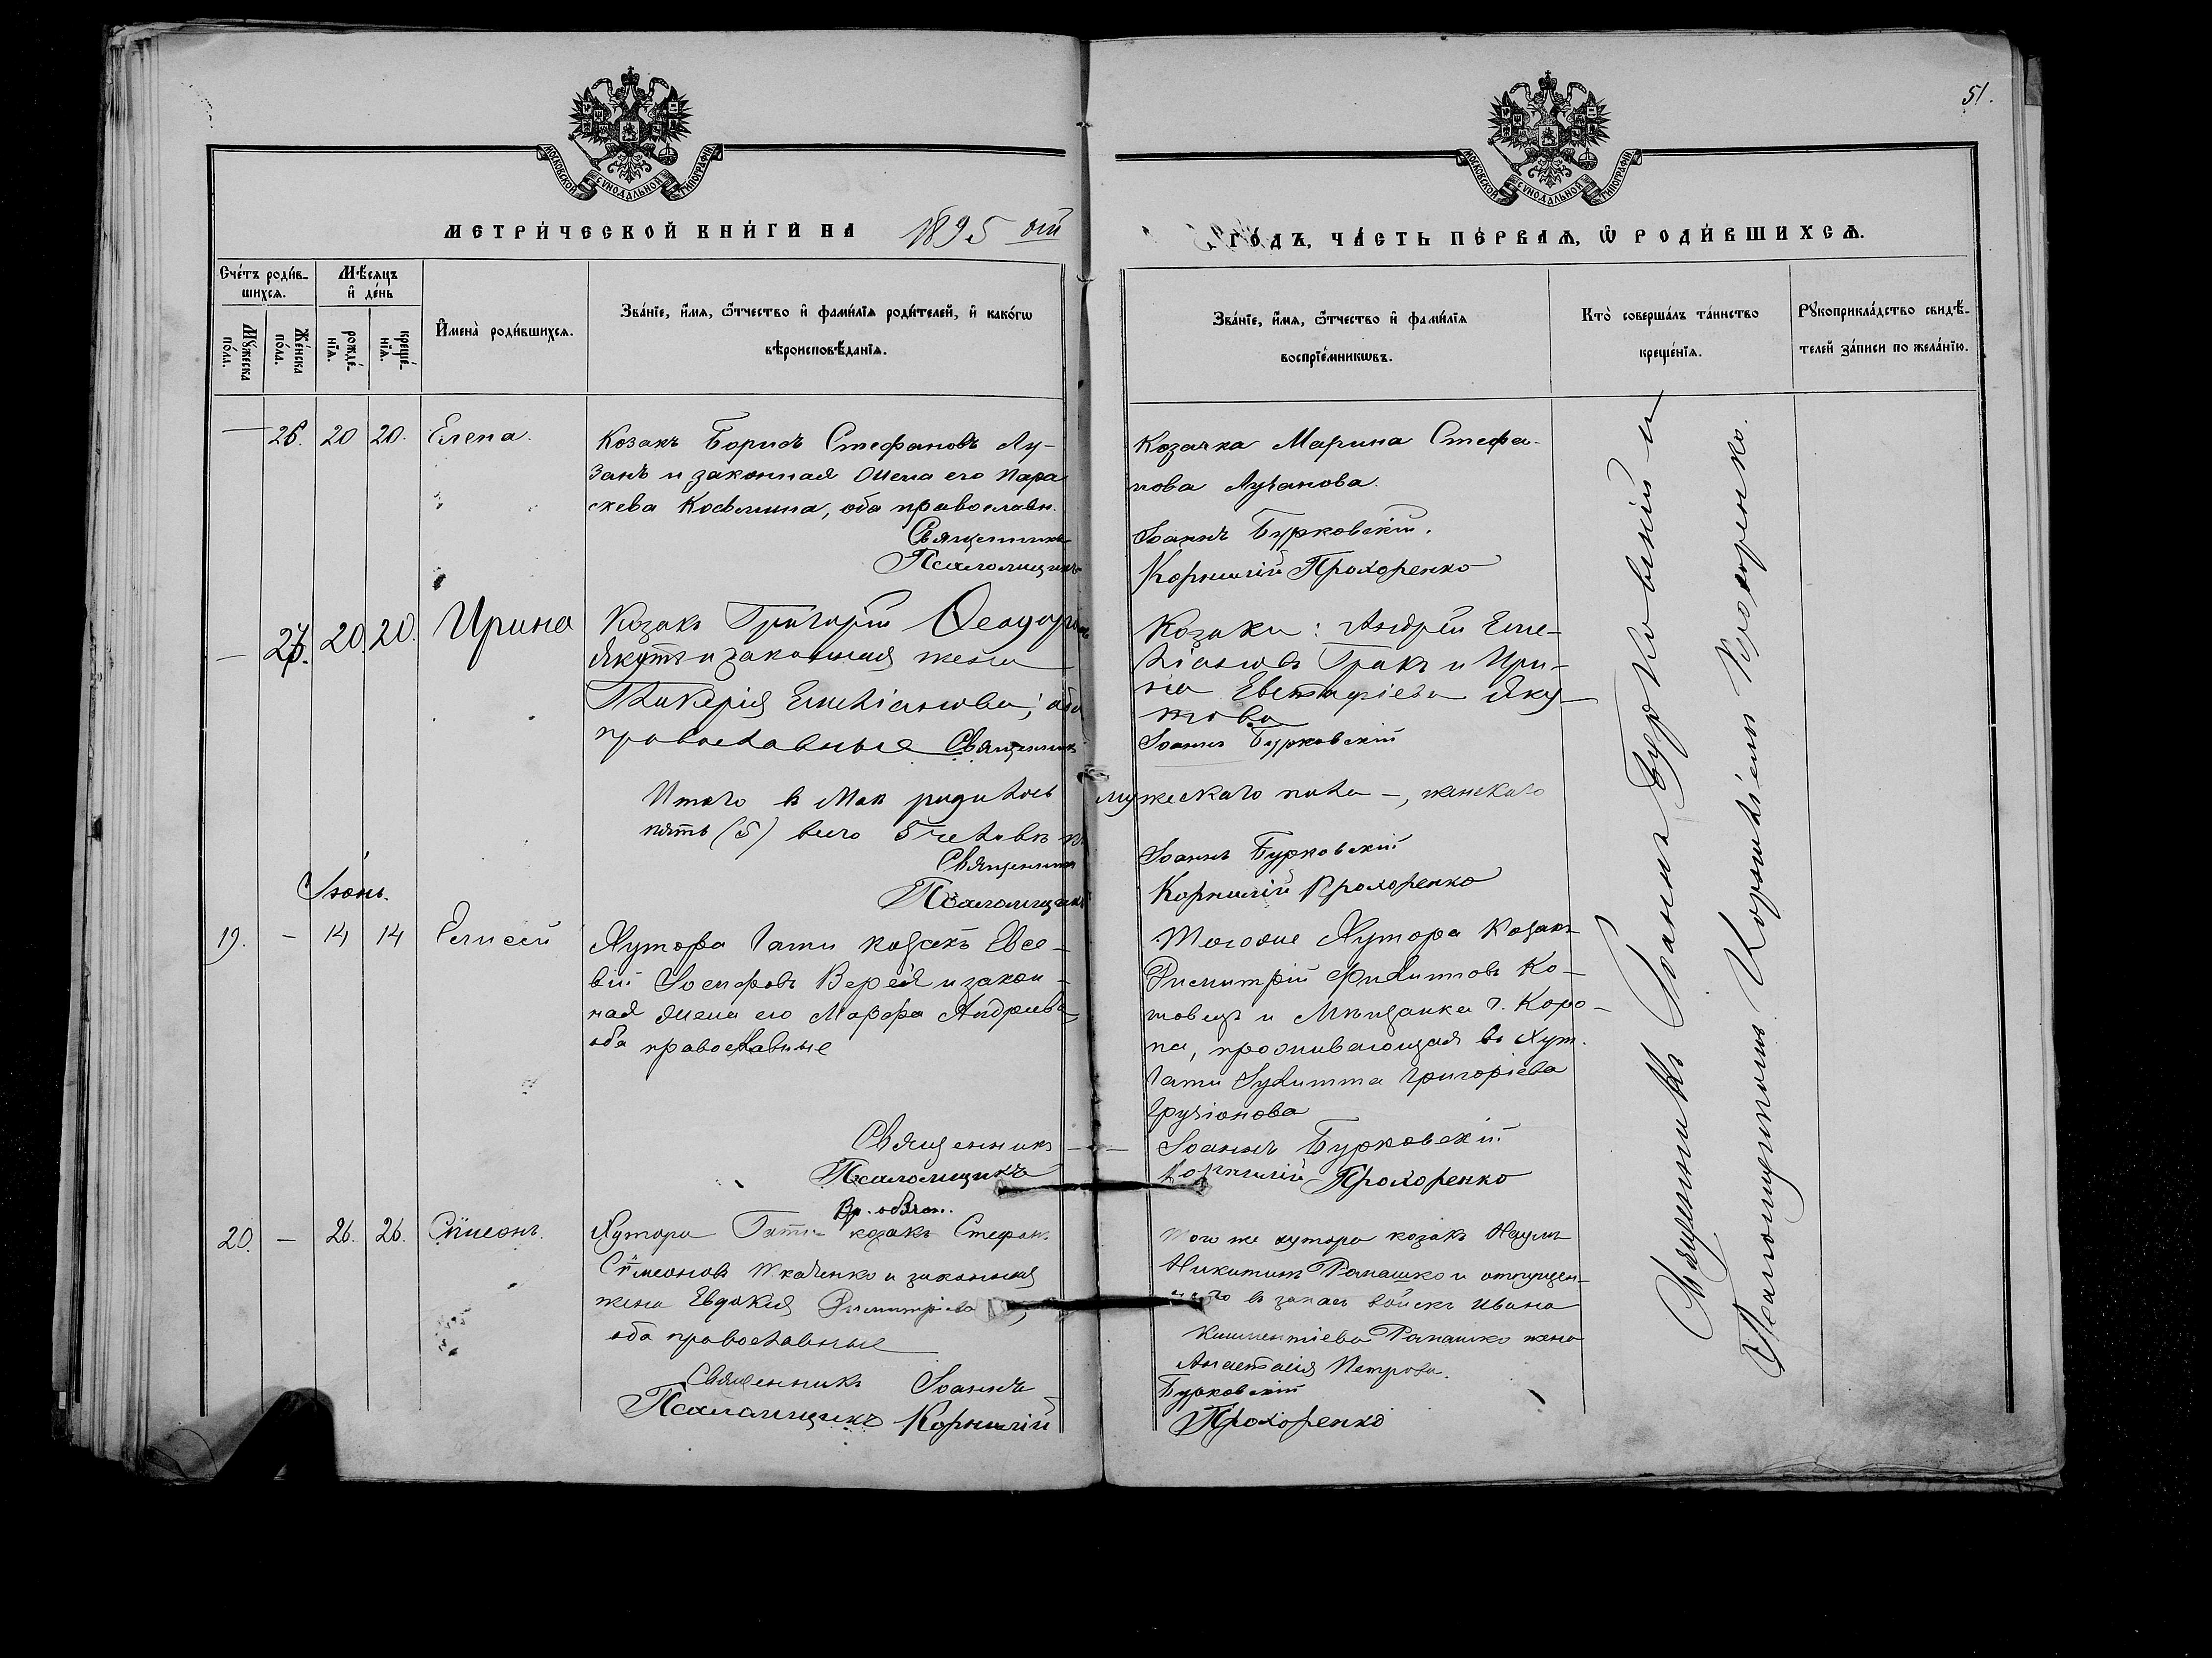 51.
МОСКОВСКОЙ СѴНОДАЛЬНОЙ ТИПОГРАФІИ
МОСКОВСКОЙ СѴНОДАЛЬНОЙ ТИПОГРАФІИ
МЕТРИ́ЧЕСКОЙ КНИ́ГИ НА 1895 ый
ГО́ДЪ, ЧА́СТЬ ПЕ́РВАѦ, Ѽ РОДИ́ВШИХСѦ.
Сче́тъ роди́в-
шихсѧ.
Мꙋ́жеска
по́ла.
Же́нска
по́ла.
Мѣ́сѧцъ
и҆ де́нь
рожде́-
нїѧ.
креще́-
нїѧ.
И҆мена̀ роди́вшихсѧ.
Зва́нїе, и҆́мѧ, ѻ҆́тчество и҆ фами́лїѧ роди́телей, и҆ како́гѡ
вѣроисповѣ́данїѧ.
Зва́нїе, и҆́мѧ, ѻ҆́тчество и҆ фами́лїѧ
воспрїе́мникѡвъ.
Кто̀ соверша́лъ та́инство
креще́нїѧ.
Рꙋкоприкла́дство свидѣ́-
телей за́писи по жела́нїю.
— 26. 20 20. Елена.
Козакъ Борисъ Стефановъ Лу-
занъ и законная жена его Пара
скева Косьмина, оба православн.
Священникъ
Псаломщикъ
Козачка Марина Стефа-
нова Лузанова.
Іоаннъ Бурковскій.
Корнилій Прохоренко
— 27. 20. 20. Ирина
Козакъ Григорій Ѳеодоровъ
Якутъ и законная жена
Гликерія Емеліанова, оба
православные Священникъ
Козаки: Андрей Еме-
ліановъ Гракъ и Ири-
на Евстафіева Яку-
това
Іоаннъ Бурковскій
Итого в Маѣ родилось мужескаго пола —, женскаго
пять (5) всего 5 человѣкъ
Священникъ
Псаломщикъ
Іоаннъ Бурковскій
Корнилій Прохоренко
Іюнь.
19. — 14 14 Елисей
Хутора Гати козакъ Евсе-
вій Іосифовъ Верея и закон-
ная жена его Марфа Андреева
оба православные
Священникъ
Псаломщикъ
Тогоже Хутора козакъ
Димитрій Филиповъ Ко-
товецъ и Мѣщанка г. Коро-
па, проживающая въ Хут.
Гати Іулитта Григорієва
Іоаннъ Бурковскій
Корнилій Прохоренко
20. — 26. 26. Сѵмеонъ.
Хутора Гати козакъ Стефан.
Сѵмеоновъ Ткаченко и законная
жена Евдокия Димитріева,
оба православные
Священникъ Іоаннъ
Псаломщикъ Корнилій
того же хутора козакъ Наумъ
Никитинъ Ромашко и отпущен-
наго в запасъ войскъ Ивана
Климентіева Ромашко жена
Анастасія Петрова.
Бурковскій
Прохоренко
Священникъ Іоаннъ Бурковскій и
Псаломщикомъ Корниліемъ Прохоренко.